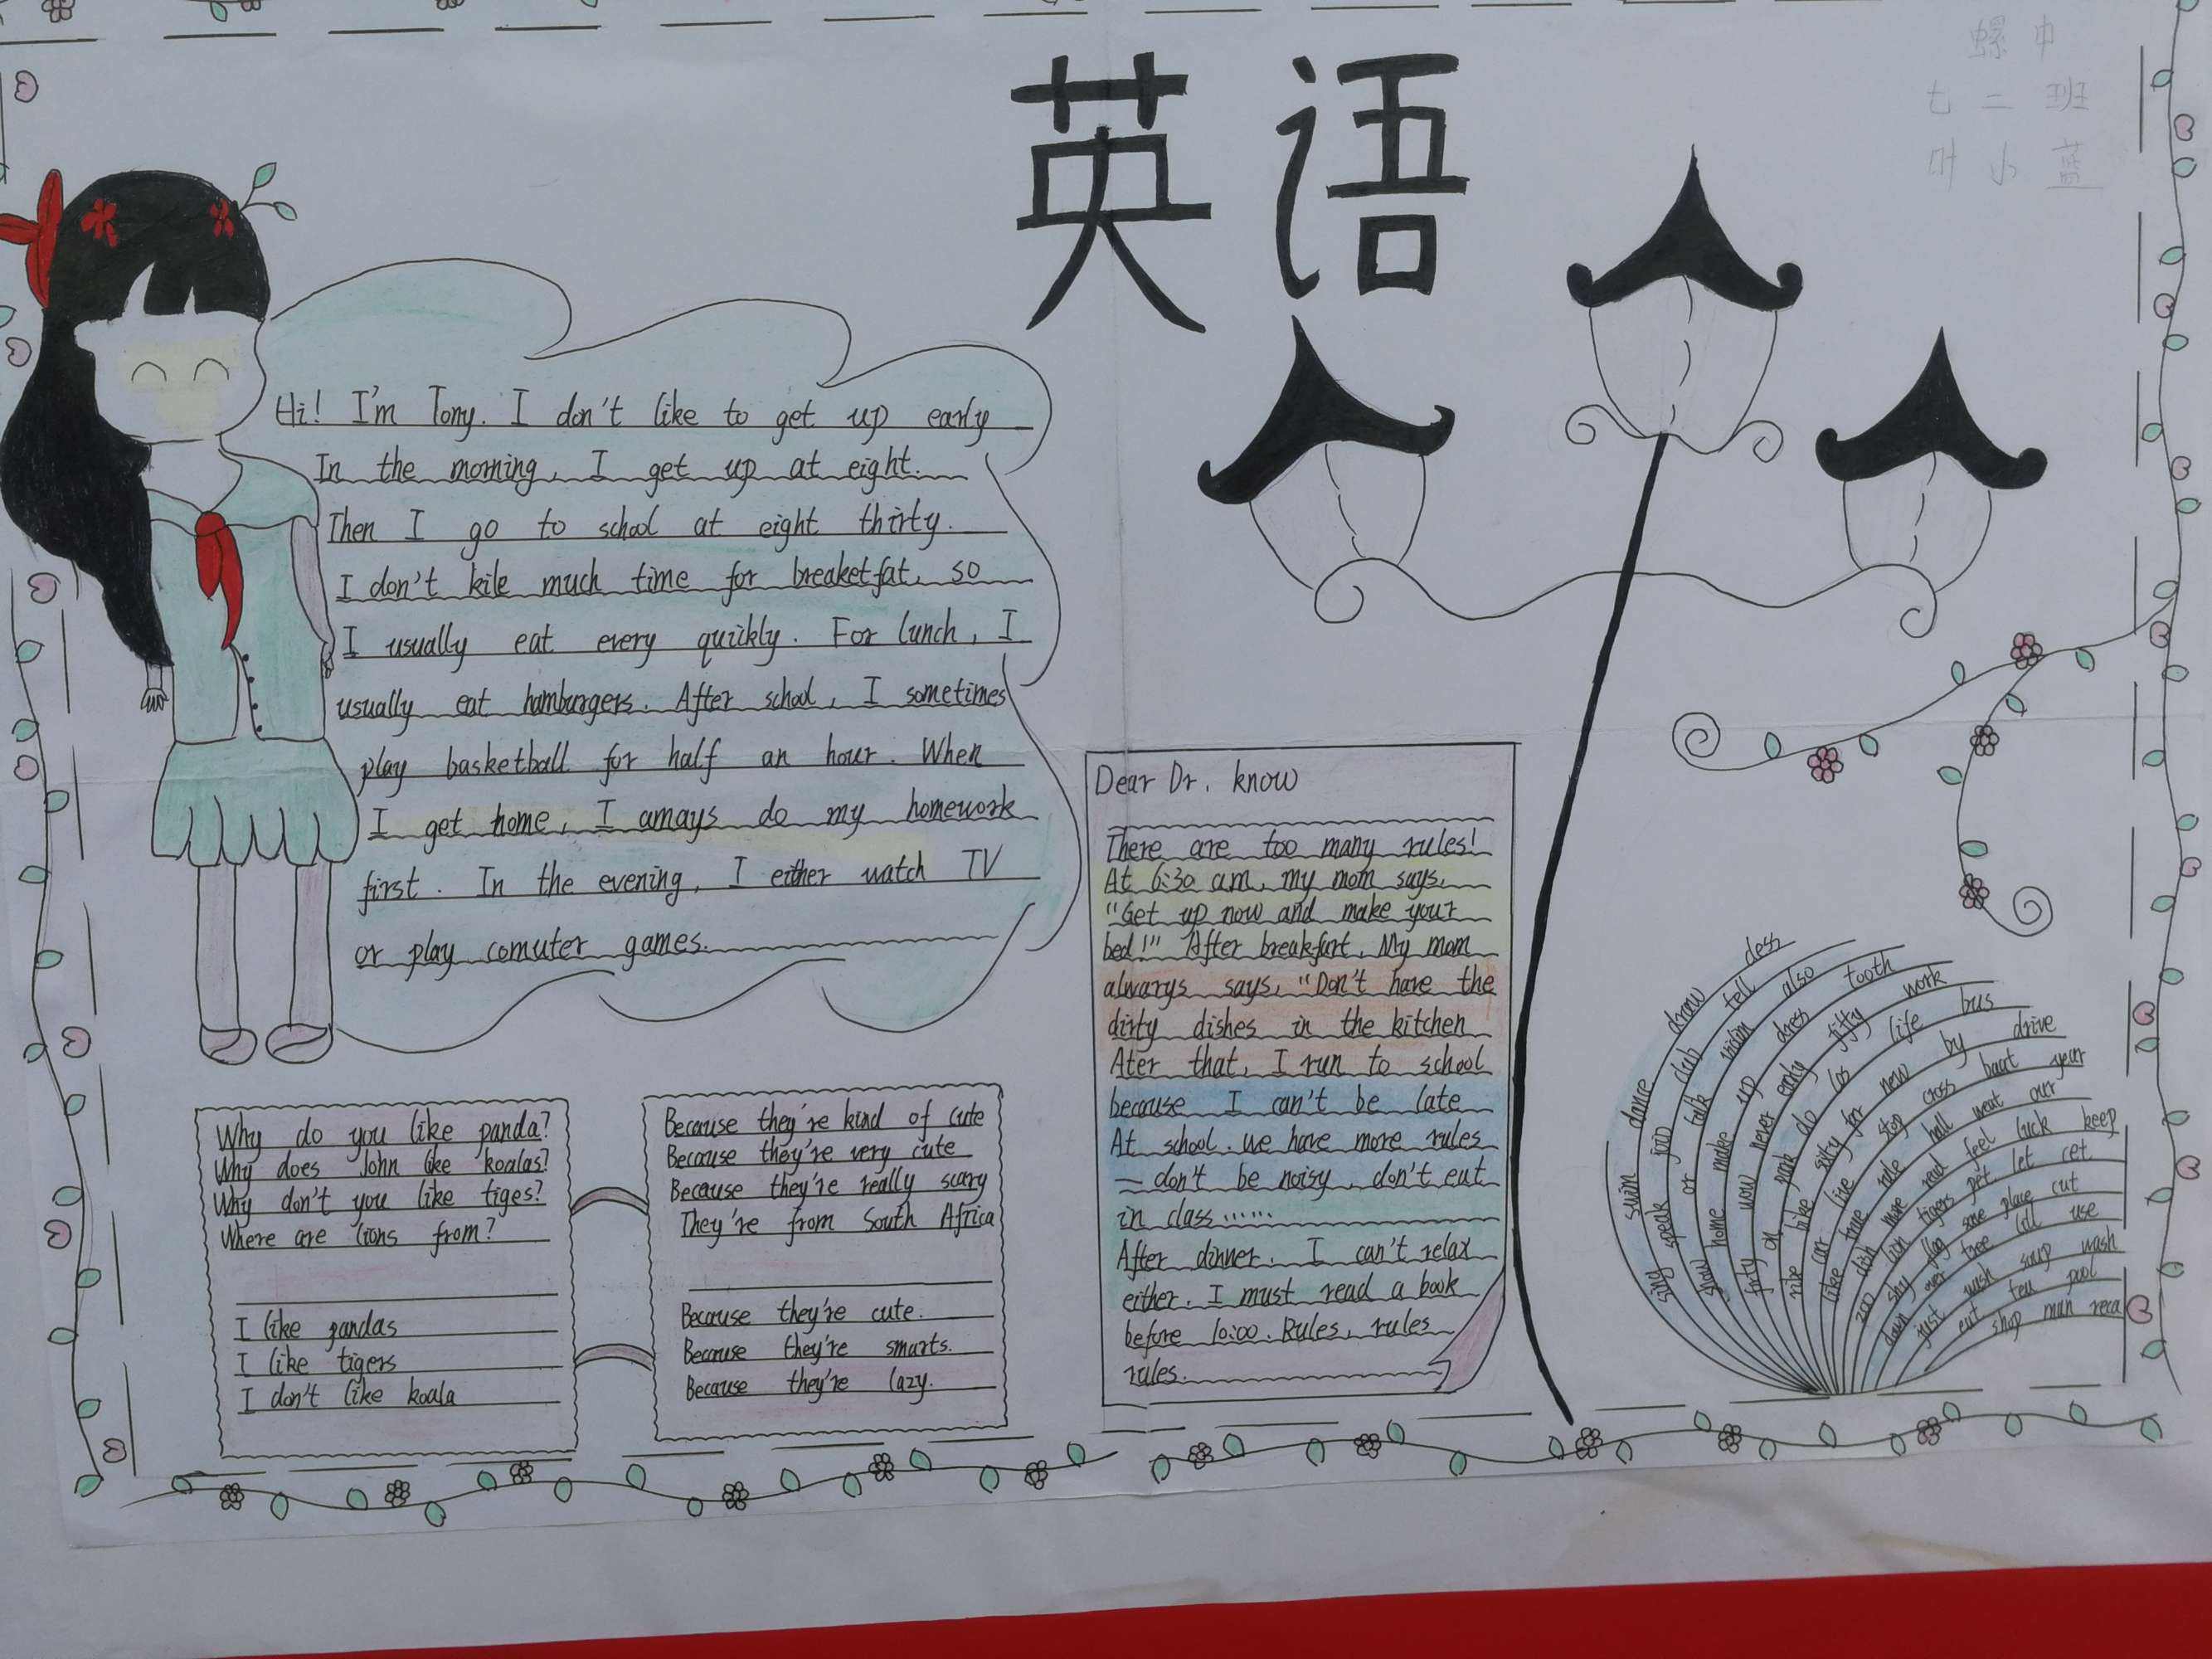 英语
螺中
七二班
叶小蓝
Hi! I'm Tony. I don't like to get up early
In the morning, I get up at eight.
Then I go to school at eight thirty.
I don't kile much time for breaketfat, so
I usually eat every quickly. For lunch, I
usually eat hamburgers. After school, I sometimes
play basketball for half an hour. When
I get home, I amays do my homework
first. In the evening, I either watch TV
or play comuter games.
Why do you like panda?
Why does John like koalas?
Why don't you like tiges?
Where are lions from?
I like pandas
I like tigers
I don't like koala
Because they're kind of cute
Because they're very cute
Because they're really scary
They're from South Africa
Because they're cute.
Because they're smarts.
Because they're lazy.
Dear Dr. know
There are too many rules!
At 6:30 am, my mom says,
"Get up now and make your
bed!" After breakfart, My mom
alwarys says, "Don't have the
dirty dishes in the kitchen
Ater that, I run to school
because I can't be late
At school. we have more rules
— don't be noisy, don't eat
in class……
After dinner. I can't relax
either. I must read a book
before 10:00. Rules, rules
rules.
swim dance draw dess
sing speak join club tell
show or talk also
home make up does tooth
forty wow never early fifty work
on do los life bus
like for new by drive
stop cross baat year
rule hall weat our
more read feel luck keep
lion tigers pet let cet
shy flag save place cut
down over tree call use
just wash soup wash
eut tea pool
shop man